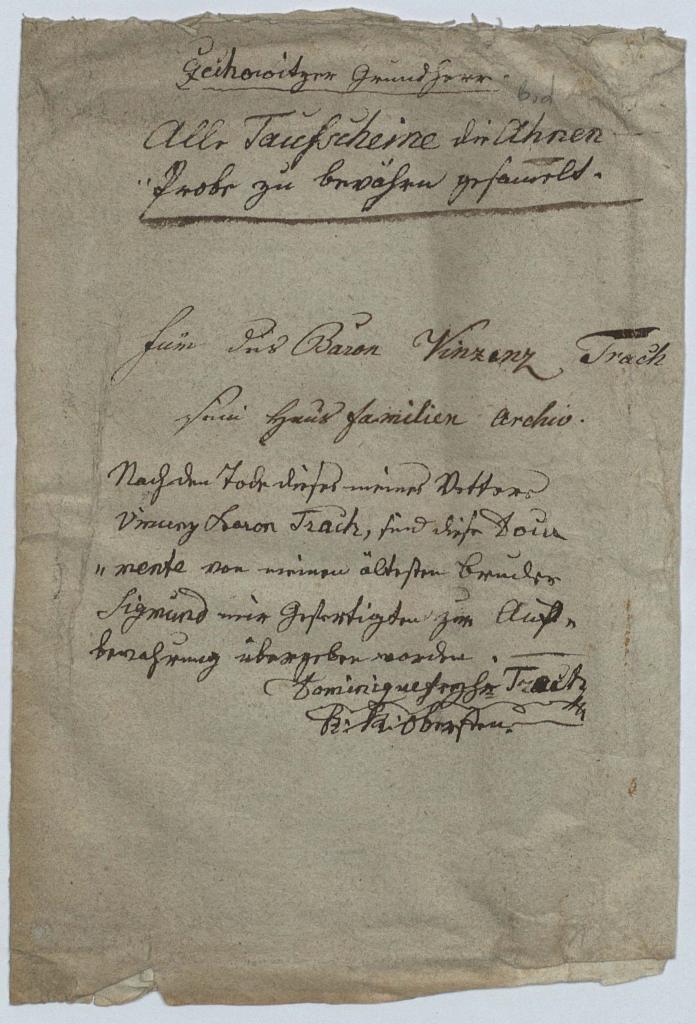 Grundherr.
Alle Taufscheine die Ahnen
Probe zu bewähren gesammelt.
Für des Baron Vinzenz Trach
sein Haus familien Archiv.
Nach den Tode dieses meines Vetters
Vinzenz Baron Trach, sind diese Docu
"mente von meinen ältesten Bruder
Sigmund mir Gefertigten zur Auf=
bewahrung übergeben worden.
Dominique Trach
K: K: Obersten.